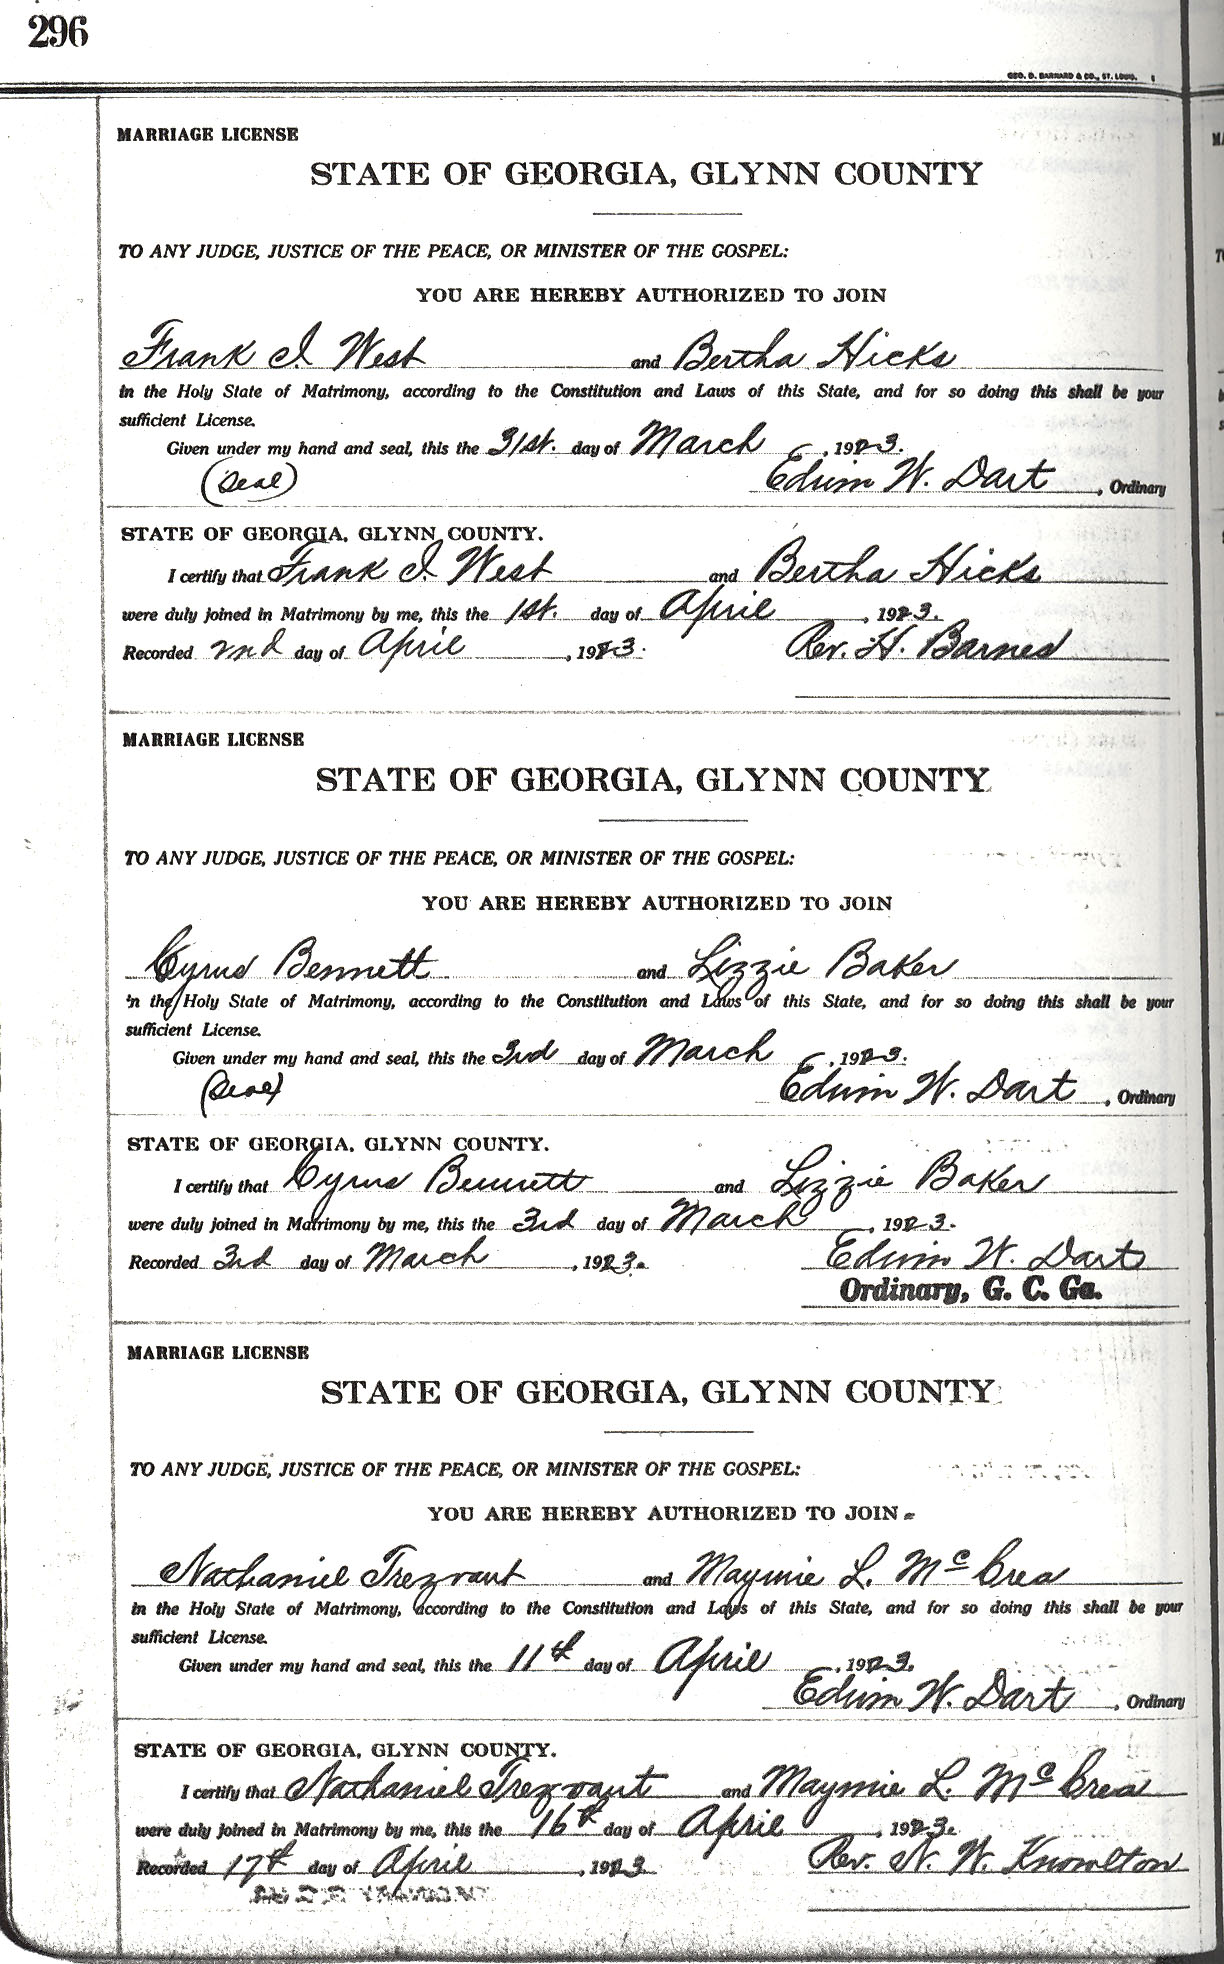 296
GEO. D. BARNARD & CO., ST. LOUIS.
MARRIAGE LICENSE
STATE OF GEORGIA, GLYNN COUNTY
TO ANY JUDGE, JUSTICE OF THE PEACE, OR MINISTER OF THE GOSPEL:
YOU ARE HEREBY AUTHORIZED TO JOIN
Frank I. West and Bertha Hicks
in the Holy State of Matrimony, according to the Constitution and Laws of this State, and for so doing this shall be your
sufficient License.
Given under my hand and seal, this the 31st. day of March, 1923.
(Seal) Edwin W. Dart, Ordinary
STATE OF GEORGIA, GLYNN COUNTY.
I certify that Frank I. West and Bertha Hicks
were duly joined in Matrimony by me, this the 1st. day of April, 1923.
Recorded 2nd day of April, 1923. Rev. H. Barnes
MARRIAGE LICENSE
STATE OF GEORGIA, GLYNN COUNTY
TO ANY JUDGE, JUSTICE OF THE PEACE, OR MINISTER OF THE GOSPEL:
YOU ARE HEREBY AUTHORIZED TO JOIN
Cyrus Bennett and Lizzie Baker
in the Holy State of Matrimony, according to the Constitution and Laws of this State, and for so doing this shall be your
sufficient License.
Given under my hand and seal, this the 3rd day of March, 1923.
(Seal) Edwin W. Dart, Ordinary
STATE OF GEORGIA, GLYNN COUNTY.
I certify that Cyrus Bennett and Lizzie Baker
were duly joined in Matrimony by me, this the 3rd day of March, 1923.
Recorded 3rd day of March, 1923. Edwin W. Dart
Ordinary, G. C. Ga.
MARRIAGE LICENSE
STATE OF GEORGIA, GLYNN COUNTY
TO ANY JUDGE, JUSTICE OF THE PEACE, OR MINISTER OF THE GOSPEL:
YOU ARE HEREBY AUTHORIZED TO JOIN
Nathaniel Trezvant and Maymie L. McCrea
in the Holy State of Matrimony, according to the Constitution and Laws of this State, and for so doing this shall be your
sufficient License.
Given under my hand and seal, this the 11th day of April, 1923.
Edwin W. Dart, Ordinary
STATE OF GEORGIA, GLYNN COUNTY.
I certify that Nathaniel Trezvant and Maymie L. McCrea
were duly joined in Matrimony by me, this the 16th day of April, 1923.
Recorded 17th day of April, 1923 Rev. N. W. Knowlton